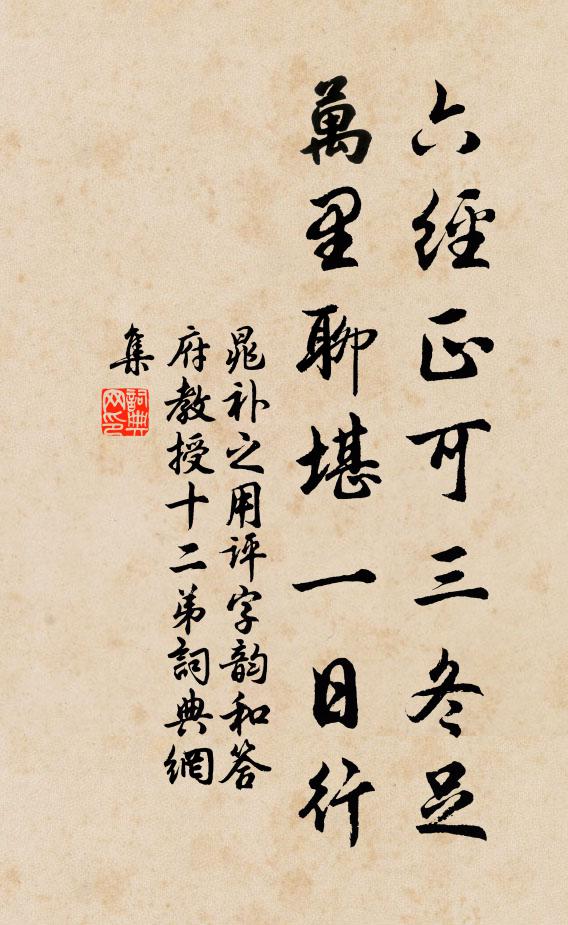 六經正可三冬足
萬里聊堪一日行
晁补之用評字韵和答
府教授十二弟詞典網
集
詞典
网印